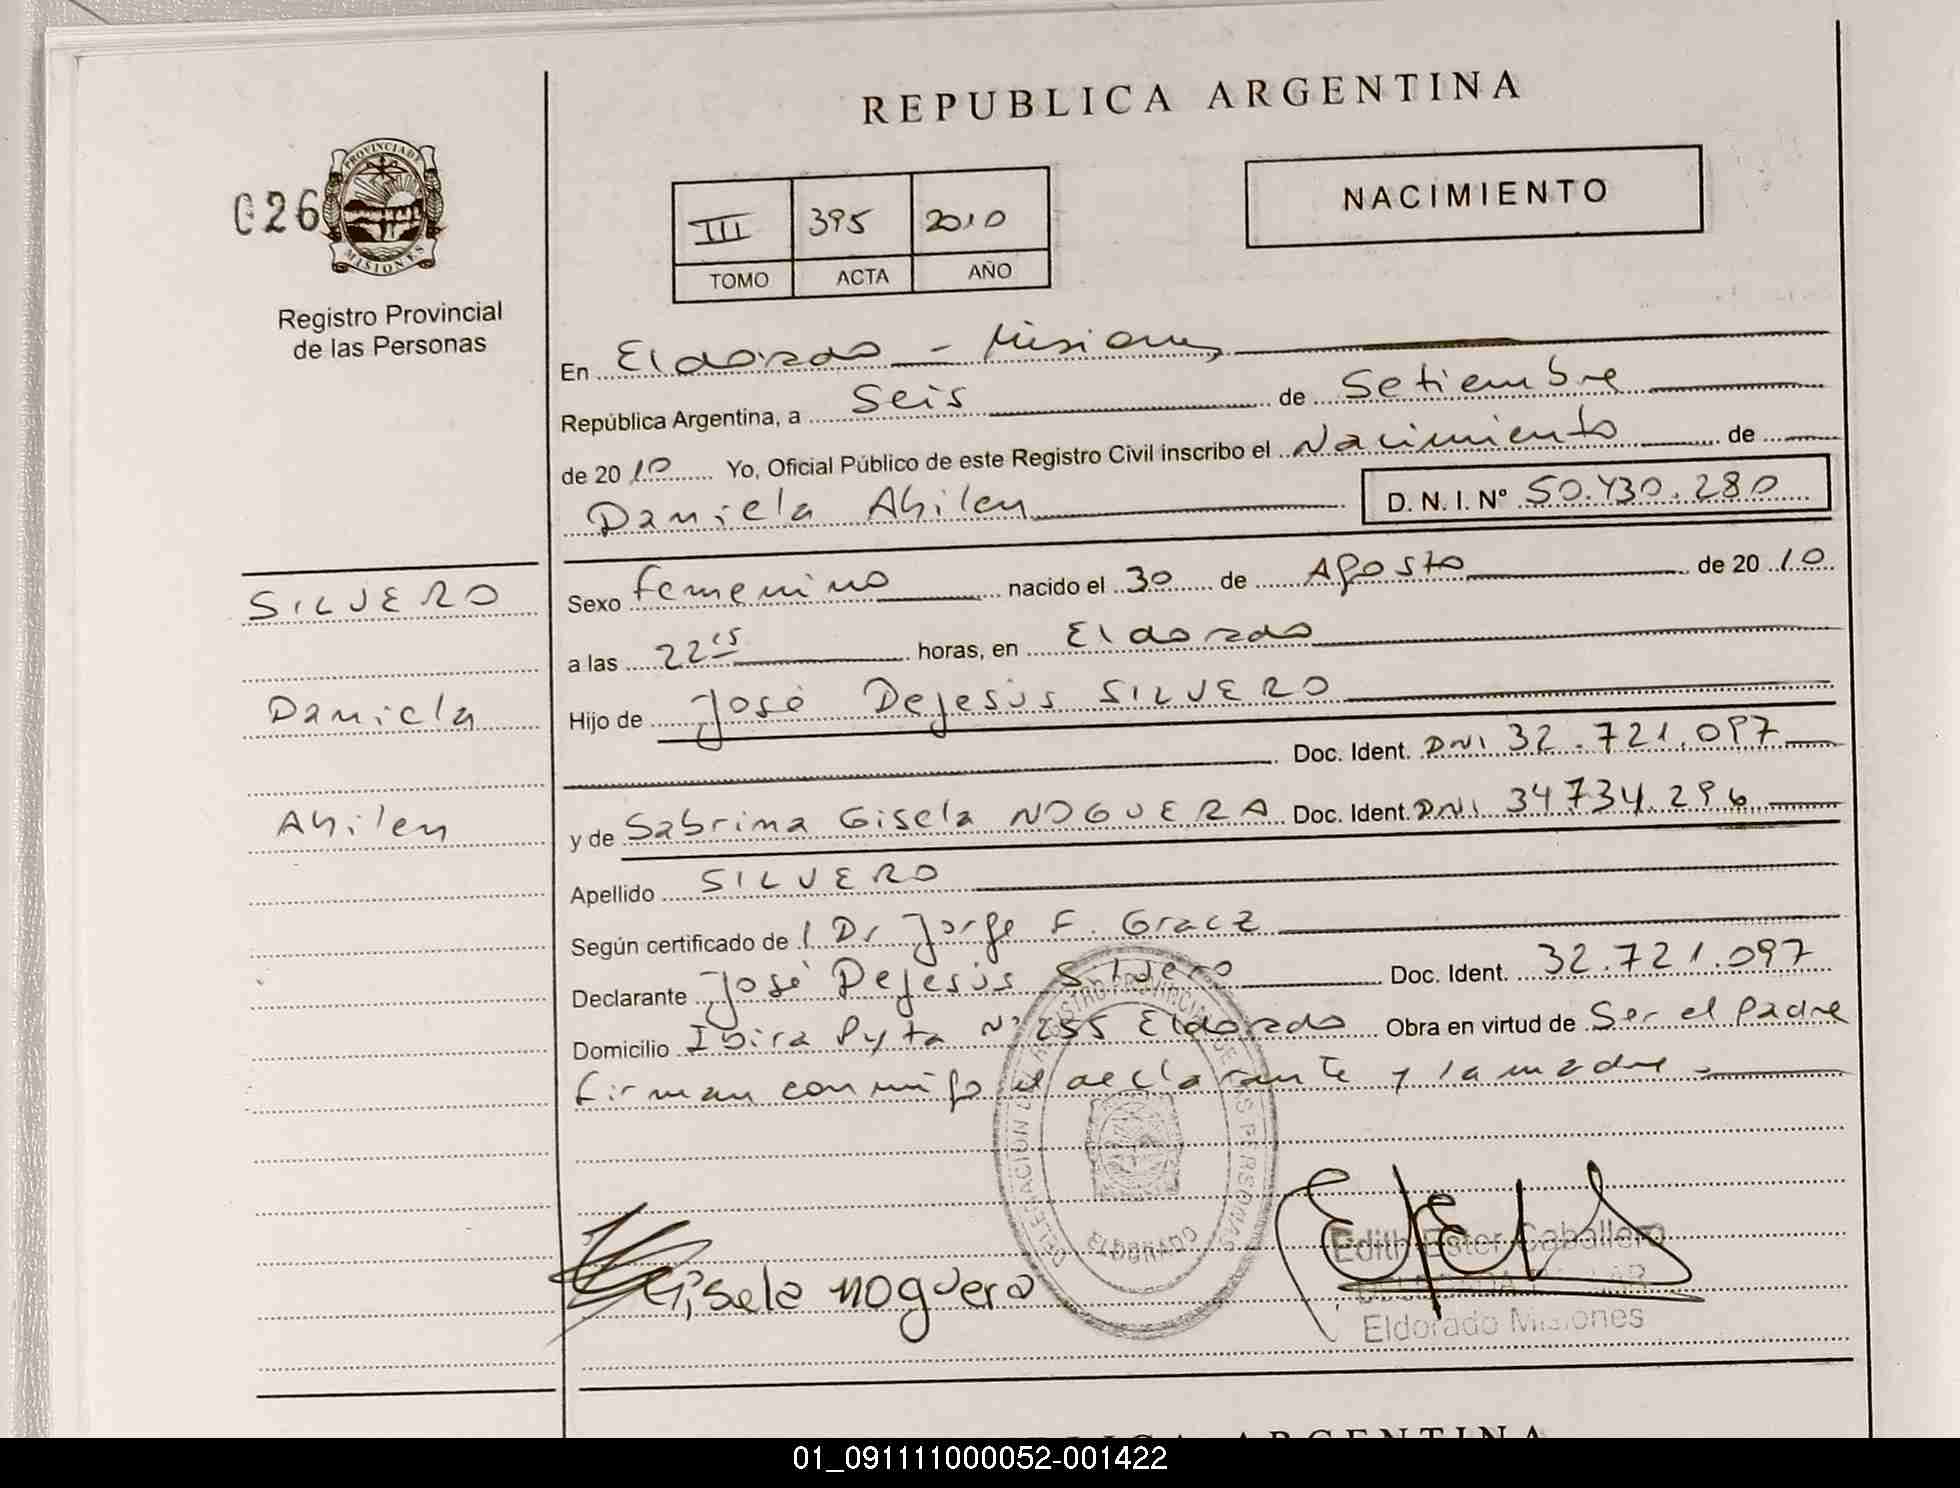 REPUBLICA ARGENTINA
026
PROVINCIA DE
MISIONES
Registro Provincial
de las Personas
NACIMIENTO
III 395 2010
TOMO ACTA AÑO
En Eldorado - Misiones
República Argentina, a Seis de Setiembre
de 2010 Yo, Oficial Público de este Registro Civil inscribo el Nacimiento de
Daniela Ahilen D. N. I. N° 50.430.280
SILVERO
Daniela
Ahilen
Sexo femenino nacido el 30 de Agosto de 2010
a las 22 15 horas, en Eldorado
Hijo de José Dejesús SILVERO
Doc. Ident. DNI 32.721.097
y de Sabrina Gisela NOGUERA Doc. Ident. DNI 34734.296
Apellido SILVERO
Según certificado de l Dr Jorge F. Gracz
Declarante José Dejesús Silvero Doc. Ident. 32.721.097
Domicilio Ibira Pyta N° 255 Eldorado Obra en virtud de Ser el Padre
firman conmigo el declarante y la madre -
DELEGACION DEL REGISTRO PROVINCIAL DE LAS PERSONAS
ELDORADO
Gisela noguera
Edith Ester Caballero
Eldorado Misiones
REPUBLICA ARGENTINA
01_091111000052-001422